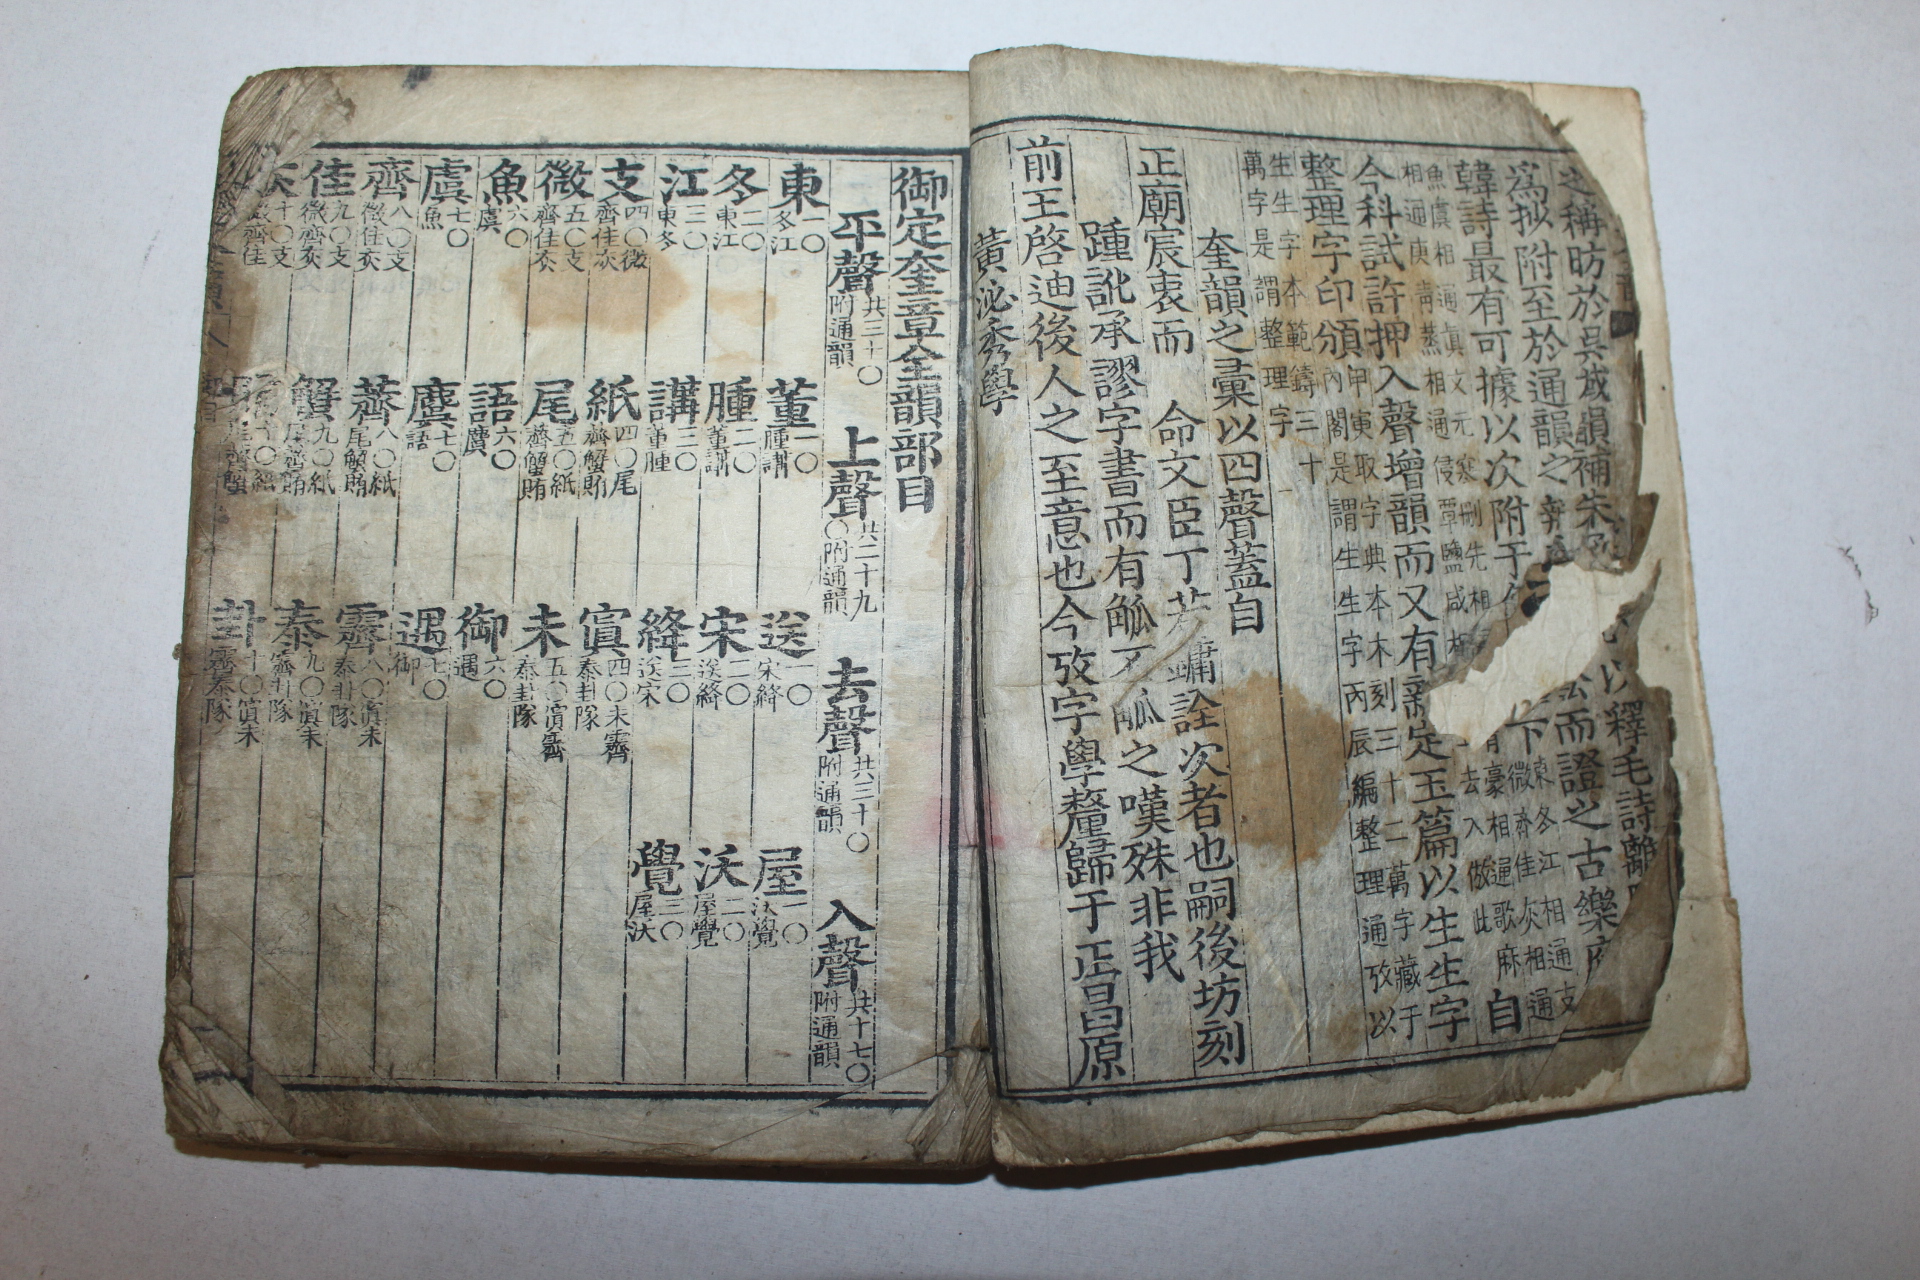 之稱昉於吳棫韻補朱 以釋毛詩離
爲拟附至於通韻之 而證之古樂府
韓詩最有可據以次附于 下東冬江相通支微齊佳灰相通
魚虞相通眞文元寒刪先相 豪相通歌麻
相通庚青蒸相通侵覃鹽咸相 去入倣此 自
今科試許押入聲增韻而又有新定玉篇以生生字
整理字印頒內閣是謂生生字丙辰編整理通攷以
甲寅取字典本木刻三十二萬字藏于
生生字本範鑄三十
萬字是謂整理字
奎韻之彙以四聲蓋自
正廟宸衷而 命文臣丁若鏞詮次者也嗣後坊刻
踵訛承謬字書而有觚不觚之嘆殊非我
前王啓迪後人之至意也今攷字學釐歸于正昌原
黃泌秀學
御定奎章全韻部目
平聲共三十〇附通韻 上聲共二十九〇附通韻 去聲共三十〇附通韻 入聲共十七〇附通韻
東一〇冬江 董一〇腫講 送一〇宋絳 屋一〇沃覺
冬二〇東江 腫二〇董講 宋二〇送絳 沃二〇屋覺
江三〇東冬 講三〇董腫 絳三〇送宋 覺三〇屋沃
支四〇微齊佳灰 紙四〇尾薺蟹賄 寘四〇未霽泰卦隊
微五〇支齊佳灰 尾五〇紙薺蟹賄 未五〇寘霽泰卦隊
魚六〇虞 語六〇麌 御六〇遇
虞七〇魚 麌七〇語 遇七〇御
齊八〇支微佳灰 薺八〇紙尾蟹賄 霽八〇寘未泰卦隊
佳九〇支微齊灰 蟹九〇紙尾薺賄 泰九〇寘未霽卦隊
灰十〇支微齊佳 賄十〇紙尾薺蟹 卦十〇寘未霽泰隊